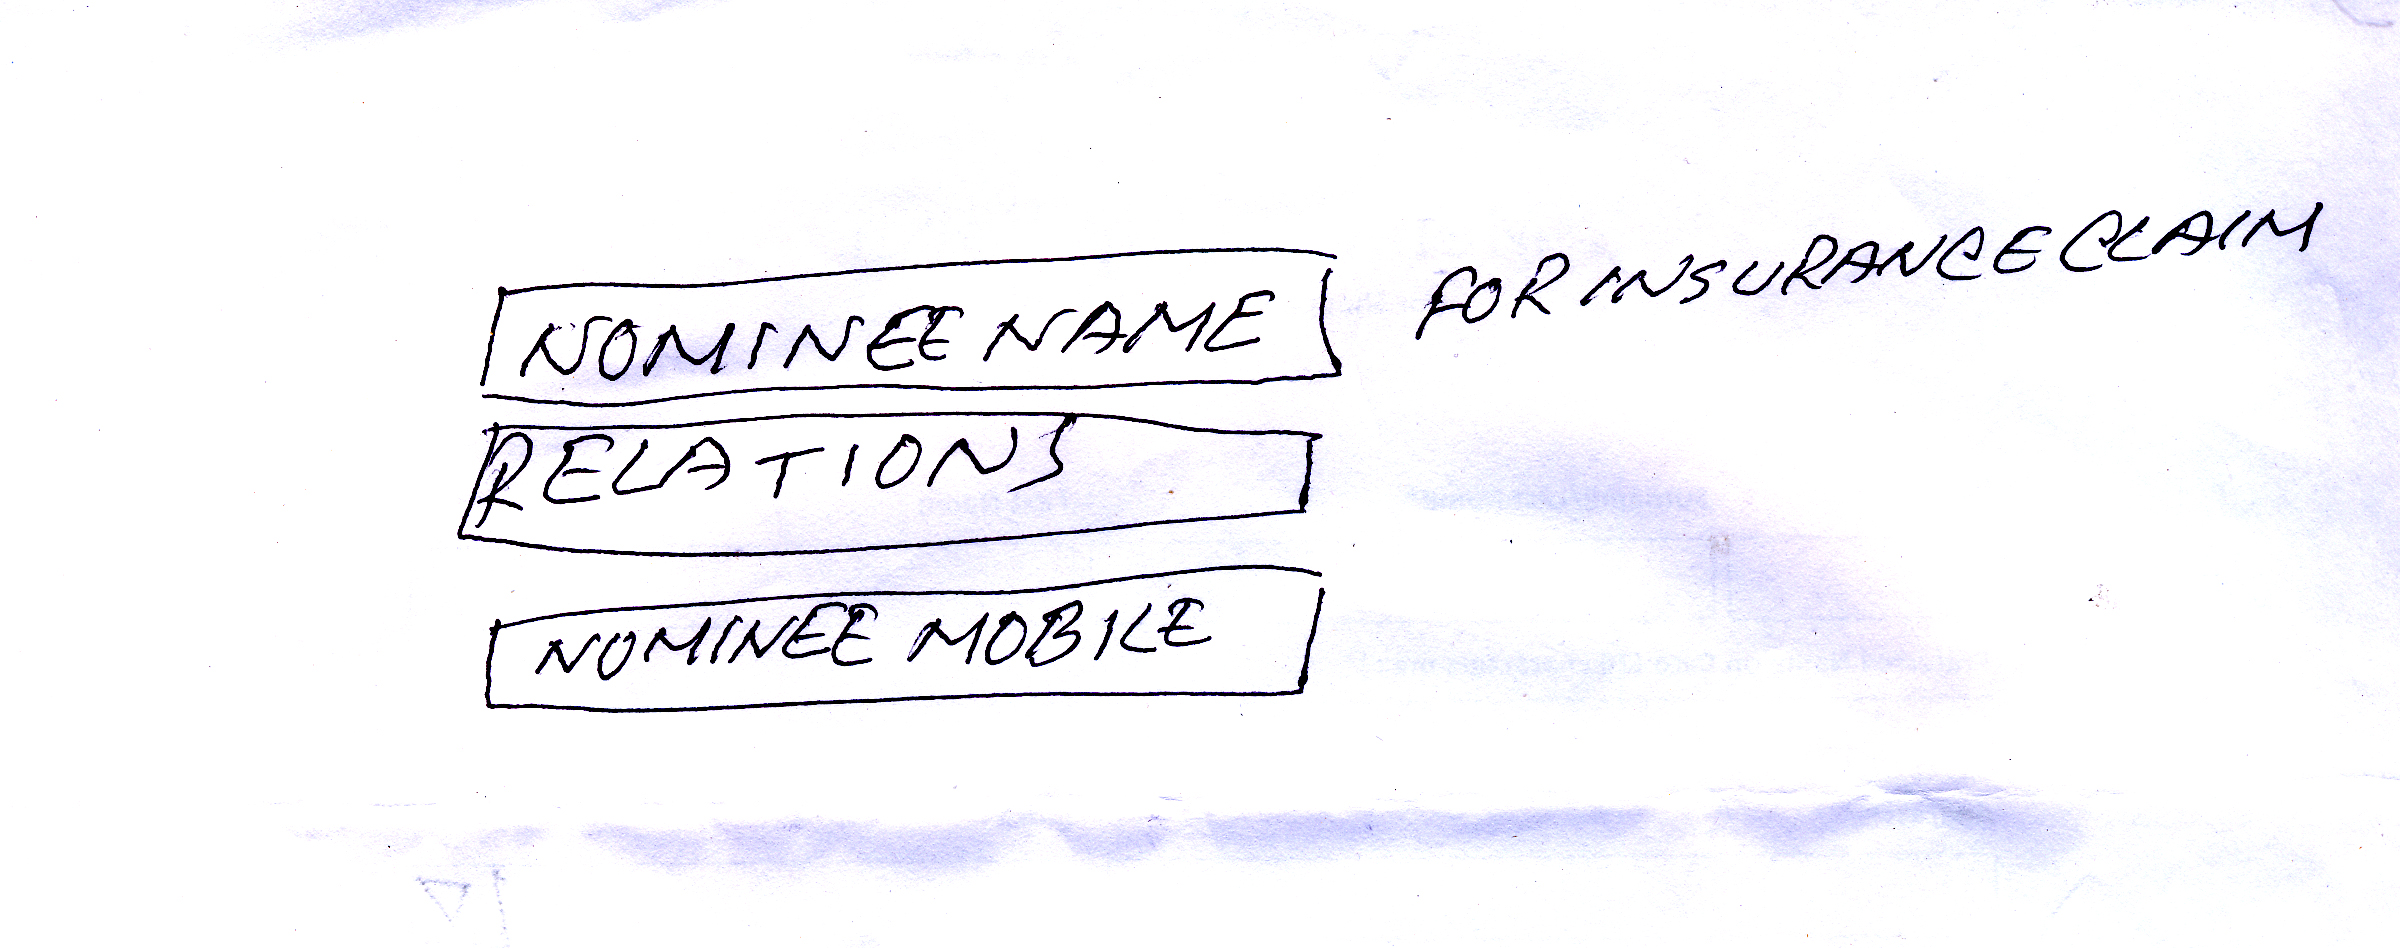 NOMINEE NAME FOR INSURANCE CLAIM
RELATIONS
NOMINEE MOBILE